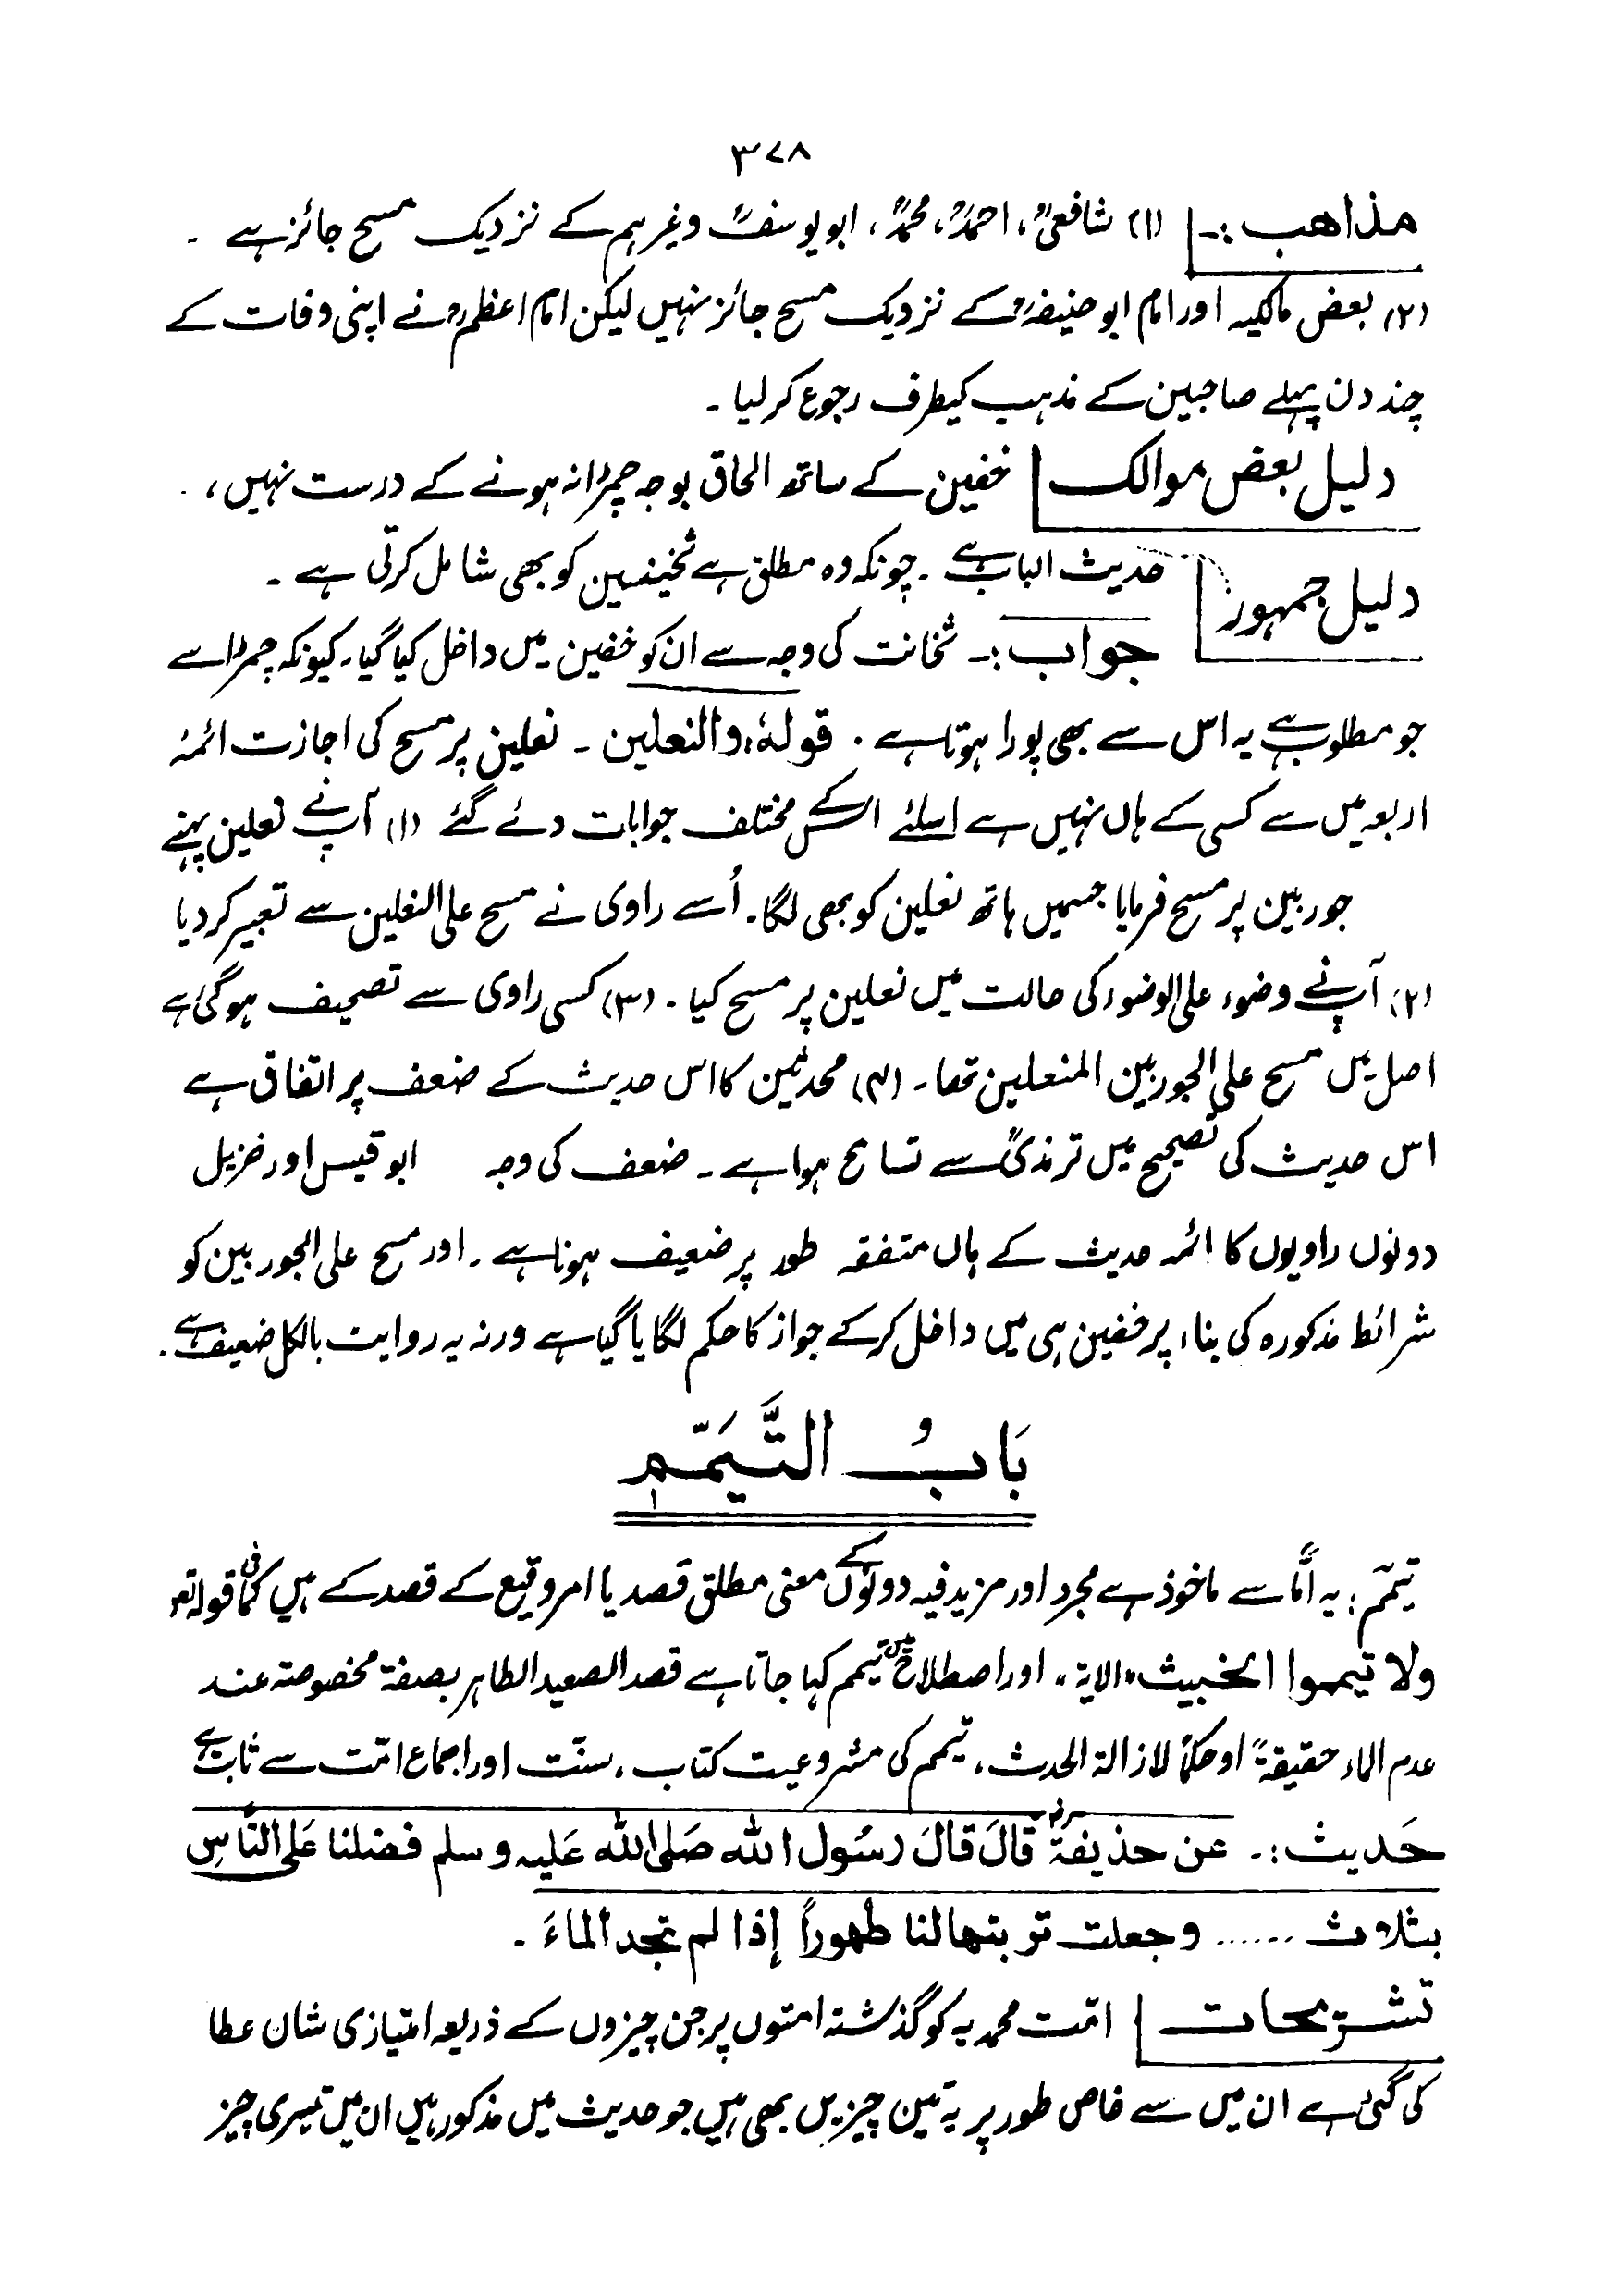 ۳۷۸
مذاهب :۔ (۱) شافعیؒ، احمدؒ، محمدؒ، ابویوسفؒ وغیرہم کے نزدیک مسح جائز ہے ۔
(۲) بعض مالکیہ اور امام ابوحنیفہؒ کے نزدیک مسح جائز نہیں لیکن امام اعظمؒ نے اپنی وفات کے
چند دن پہلے صاحبین کے مذہب کیطرف رجوع کرلیا ۔
دلیل بعض موالک خفین کے ساتھ الحاق بوجہ چمڑا نہ ہونے کے درست نہیں ،
دلیل جمہور حدیث الباب ہے ۔ چونکہ وہ مطلق ہے ثخینین کو بھی شامل کرتی ہے ۔
جواب :۔ ثخانت کی وجہ سے ان کو خفین میں داخل کیا گیا ۔ کیونکہ چمڑا سے
جو مطلوب ہے یہ اس سے بھی پورا ہوتا ہے ۔ قولہٗ والنعلین ۔ نعلین پر مسح کی اجازت ائمۂ
اربعہ میں سے کسی کے ہاں نہیں ہے اسلئے اسکے مختلف جوابات دئے گئے (۱) آپ نے نعلین پہنے
جوربین پر مسح فرمایا جسمیں ہاتھ نعلین کو بھی لگا ۔ اُسے راوی نے مسح علی النعلین سے تعبیر کر دیا
(۲) آپ نے وضوء علی الوضوء کی حالت میں نعلین پر مسح کیا ۔ (۳) کسی راوی سے تصحیف ہوگئی ہے
اصل میں مسح علی الجوربین المنعلین تھا ۔ (۴) محدثین کا اس حدیث کے ضعف پر اتفاق ہے
اس حدیث کی تصحیح میں ترمذیؒ سے تسامح ہوا ہے ۔ ضعف کی وجہ ابوقیس اور ہزیل
دونوں راویوں کا ائمہ حدیث کے ہاں متفقہ طور پر ضعیف ہونا ہے ۔ اور مسح علی الجوربین کو
شرائط مذکورہ کی بناء پر خفین ہی میں داخل کرکے جواز کا حکم لگایا گیا ہے ورنہ یہ روایت بالکل ضعیف ہے ۔
بَابُ التَّیَمّم
تیمّم : یہ اَمٌّ سے ماخوذ ہے مجرد اور مزید فیہ دونوں کے معنی مطلق قصد یا امر وقیع کے قصد کے ہیں کما فی قولہ تعہ
ولا تیمموا الخبیث " الایۃ " اور اصطلاح میں تیمم کہا جاتا ہے قصد الصعید الطاہر بصفۃ مخصوصۃ عند
عدم الماء حقیقۃً او حکماً لازالۃ الحدث ، تیمم کی مشروعیت کتاب ، سنّت اور اجماع امّت سے ثابت ہے
حَدیث :۔ عن حذیفۃؓ قالَ قالَ رسُول اللہ صَلی اللہ عَلیہ وسلم فضلنا عَلی النّاسِ
بثلاث ...... وجعلت تربتها لنا طهوراً إذا لم تجد الماءَ ۔
تشریحات امّت محمدیہ کو گذشتہ امتوں پر جن چیزوں کے ذریعہ امتیازی شان عطا
کی گئی ہے ان میں سے خاص طور پر یہ تین چیزیں بھی ہیں جو حدیث میں مذکور ہیں ان میں تیسری چیز